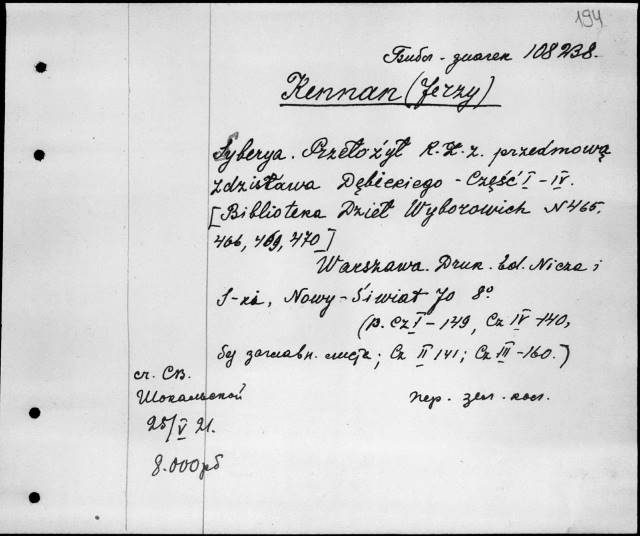 194
108238.
Kennan (Jerzy)
Syberya. Przełożył R.Z. z przedmową
Zdzisława Dębickiego - Część I - IV.
[Biblioteka Dzieł Wyborowich N 465,
466, 469, 470]
Warszawa. Druk. Ed. Nicza i
S-ka, Nowy-Świat 70 8°
(p. Cz I - 149, Cz IV - 140,
без заглавн. листа; Cz II 141; Cz III - 160.)
ст. Св.
Шокальской
25/V 21.
8.000 рб
пер. зел. кол.